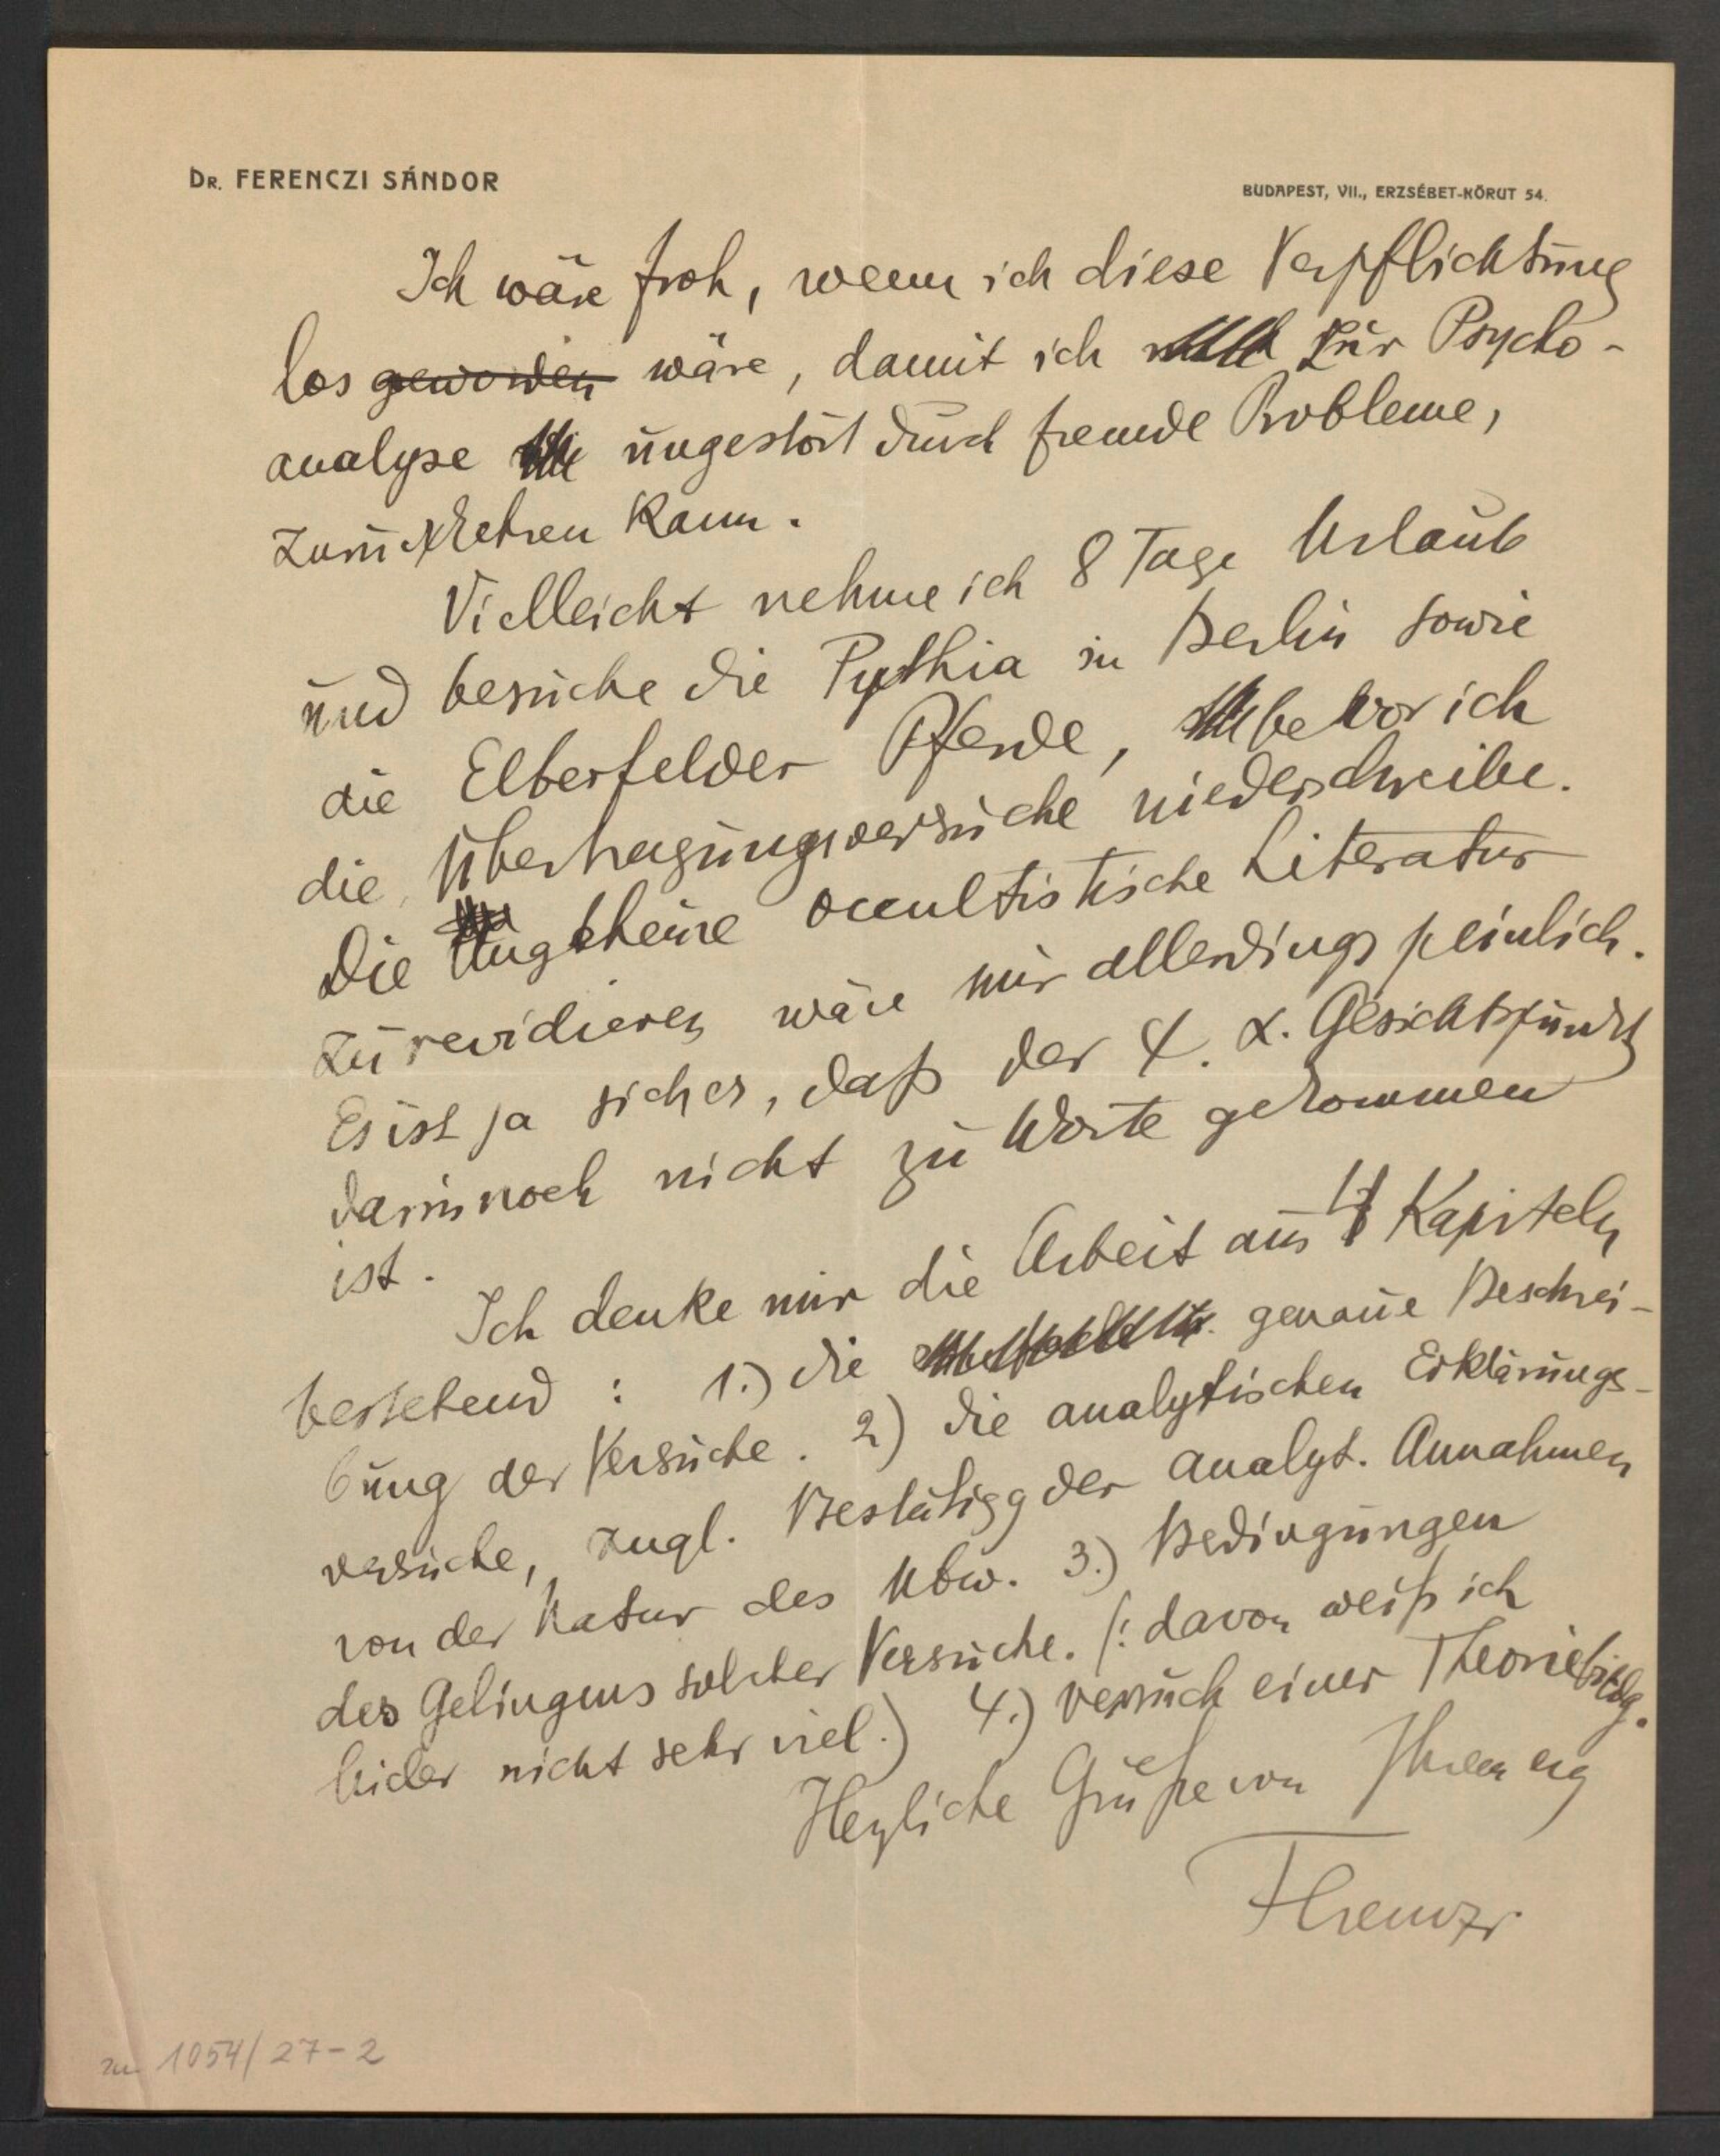 DR. FERENCZI SÁNDOR
BUDAPEST, VII., ERZSÉBET-KÖRUT 54.
Ich wäre froh, wenn ich diese Verpflichtung
los geworden wäre, damit ich zur Psycho-
analyse ungestört durch fremde Probleme,
zurückkehren kann.
Vielleicht nehme ich 8 Tage Urlaub
und besuche die Pythia in Berlin sowie
die Elberfelder Pferde, bevor ich
die Übertragungsversuche niederschreibe.
Die Ungeheure occultistische Literatur
zu revidieren wäre mir allerdings peinlich.
Es ist ja sicher, daß der Gesichtspunkt
darin noch nicht zu Worte gekommen
ist.
Ich denke mir die Arbeit aus 4 Kapiteln
bestehend : 1.) die genaue Beschrei-
bung der Versuche. 2) die analytischen Erklärungs-
versuche, zugl. Bestätigg der analyt. Annahmen
von der Natur des Ubw. 3.) Bedingungen
des Gelingens solcher Versuche. (: davon weiß ich
leider nicht sehr viel.) 4.) versuch einer Theoriebildg.
Herzliche Grüße von Ihrem erg
Ferenczi
zu 1054/27-2